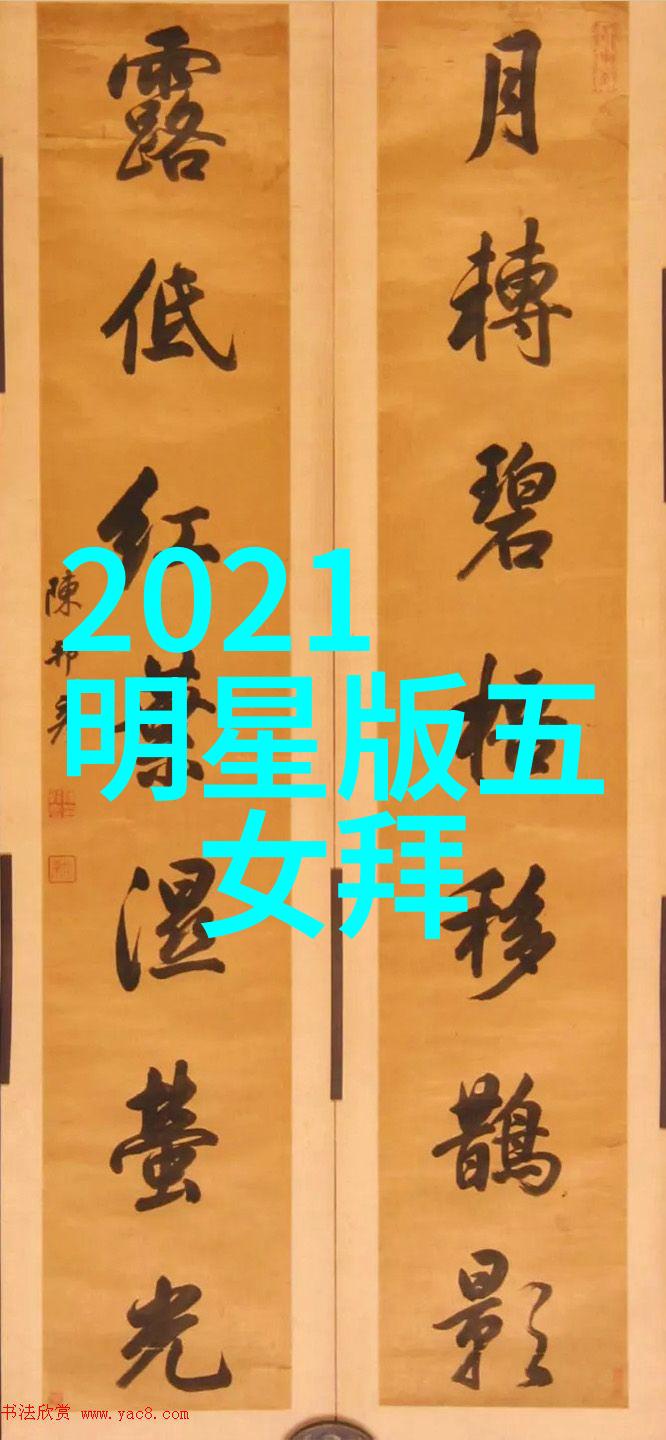 月轉碧梧移鵲影
露低紅葉濕螢光
陳邦彥
2021
明星版五
女拜
书法欣赏 www.yac8.com